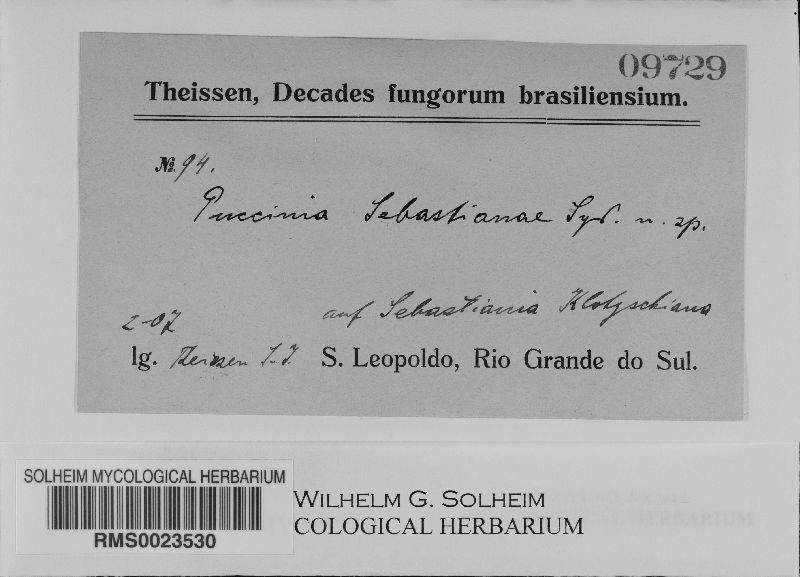 09729
Theissen, Decades fungorum brasiliensium.
№ 94.
Puccinia Sebastianae Syd. n. sp.
auf Sebastiania Klotzschiana
2-07
lg. Theissen S.J. S. Leopoldo, Rio Grande do Sul.
SOLHEIM MYCOLOGICAL HERBARIUM
RMS0023530
WILHELM G. SOLHEIM
COLOGICAL HERBARIUM